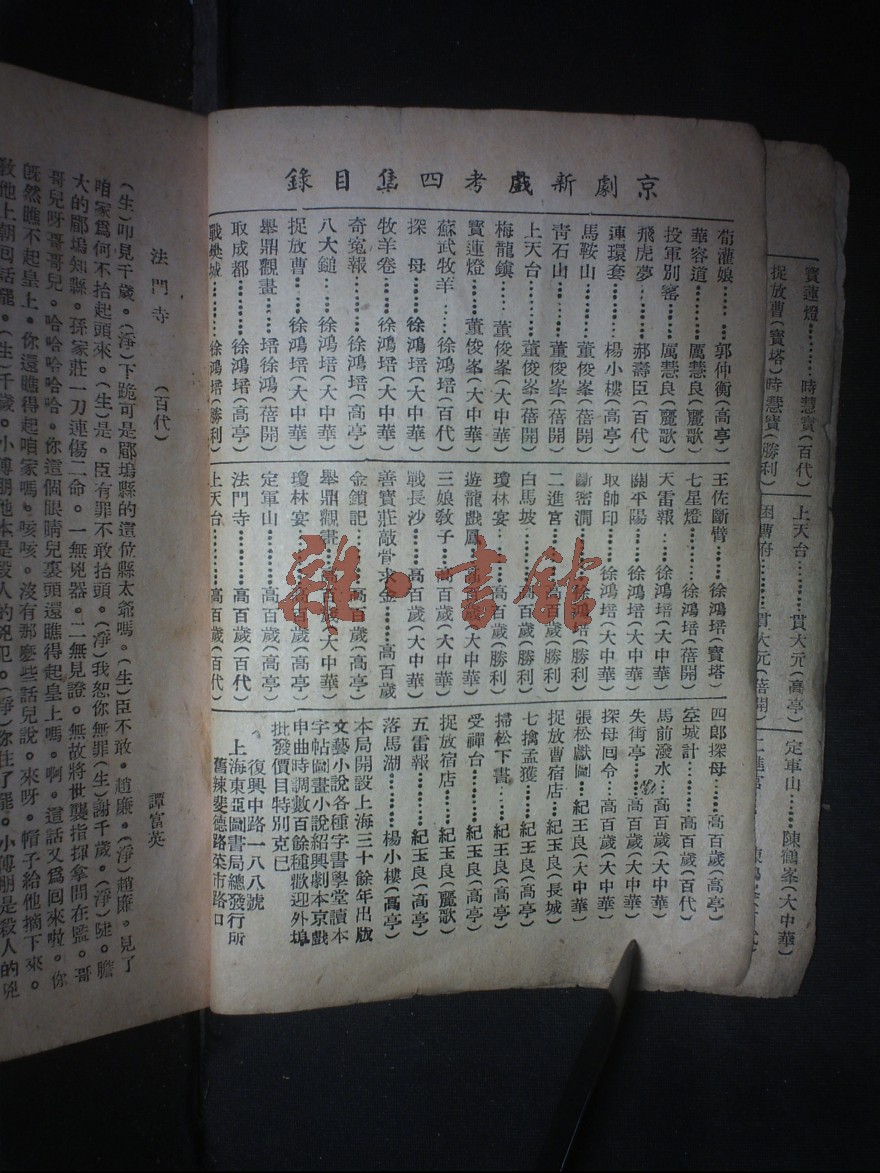 京劇新戲考四集目錄
荀灌娘……郭仲衡(高亭)
華容道……厲慧良(麗歌)
投軍別窰……厲慧良(麗歌)
飛虎夢……郝壽臣(百代)
連環套……楊小樓(高亭)
馬鞍山……董俊峯(大中華)
靑石山……董俊峯(蓓開)
上天台……董俊峯(蓓開)
梅龍鎭……董俊峯(大中華)
寶蓮燈……董俊峯(大中華)
蘇武牧羊……徐鴻培(百代)
探母……徐鴻培(大中華)
牧羊卷……徐鴻培(蓓開)
奇冤報……徐鴻培(高亭)
八大鎚……徐鴻培(大中華)
捉放曹……徐鴻培(大中華)
舉鼎觀畫……培徐鴻(蓓開)
取成都……徐鴻培(高亭)
戰樊城……徐鴻培(勝利)
王佐斷臂……徐鴻培(寶塔)
七星燈……徐鴻培(蓓開)
天雷報……徐鴻培(大中華)
關平陽……徐鴻培(大中華)
取帥印……徐鴻培(大中華)
斷密澗……徐鴻培(勝利)
二進宮……高百歲(蓓開)
白馬坡……高百歲(勝利)
瓊林宴……高百歲(勝利)
遊龍戲鳳……高百歲(大中華)
三娘敎子……高百歲(大中華)
戰長沙……高百歲(大中華)
善寶莊敲骨求金……高百歲
金鎖記……高百歲(高亭)
舉鼎觀畫……高百歲(大中華)
瓊林宴……高百歲(大中華)
定軍山……高百歲(高亭)
法門寺……高百歲(百代)
上天台……高百歲(百代)
四郎探母……高百歲(高亭)
空城計……高百歲(百代)
馬前潑水……高百歲(大中華)
失街亭……高百歲(大中華)
探母回令……高百歲(大中華)
張松獻圖……紀玉良(大中華)
捉放曹宿店……紀玉良(長城)
七擒孟獲……紀玉良(高亭)
掃松下書……紀玉良(高亭)
受禪台……紀玉良(高亭)
捉放宿店……紀玉良(麗歌)
五雷報……紀玉良(高亭)
落馬湖……楊小樓(高亭)
本局開設上海三十餘年出版
文藝小說各種字書學堂讀本
字帖圖畫小說紹興劇本京戲
申曲時調數百餘種歡迎外埠
批發價目特別克已
復興中路一八八號
上海東亞圖書局總發行所
舊辣斐德路菜市路口
寶蓮燈……時慧寶(百代)
捉放曹(寶塔)時慧寶(勝利)
上天台……貫大元(高亭)
困曹府……貫大元(蓓開)
定軍山……陳鶴峯(大中華)
二進宮
法門寺 (百代) 譚富英
(生)叩見千歲。(淨)下跪可是郿塢縣的這位縣太爺嗎。(生)臣不敢。趙廉。(淨)趙廉。見了
咱家爲何不抬起頭來。(生)是。臣有罪不敢抬頭。(淨)我恕你無罪(生)謝千歲。(淨)唗。膽
大的郿塢知縣。孫家莊一刀連傷二命。一無兇器。二無見證。無故將世襲指揮拿問在監。哥
哥兒呀哥哥兒。哈哈哈哈哈。你這個眼睛兒裏頭還瞧得起皇上嗎。啊。這話又爲回來啦。你
旣然瞧不起皇上。你還瞧得起咱家嗎。咳咳。沒有那麽些話兒說。來呀。帽子給他摘下來。
敎他上朝回話罷。(生)千歲。小傅朋他本是殺人的兇犯。(淨)你住了罷。小傅朋是殺人的兇
雜·書館